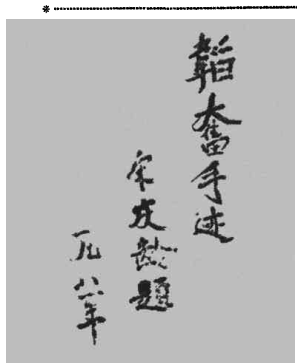 韬奋手迹
宋庆龄题
一九八一年